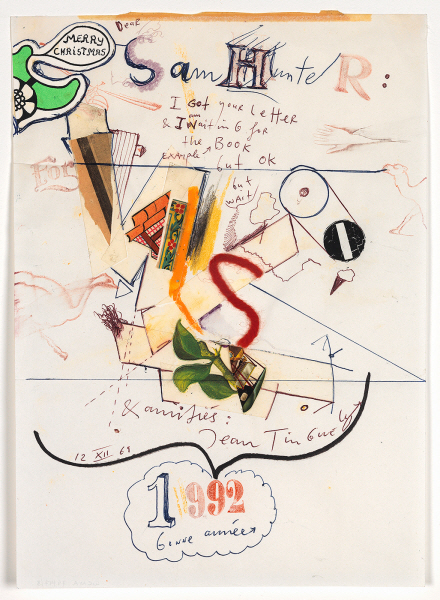 MERRY
CHRISTMAS
Dear
Sam HunteR:
I Got your LetteR
& I am Wait in G foR
the BOOK
EXAMPLE
but OK
but
WAIT
For
S
& amitiés:
Jean TinGuely
12 XII 69
1992